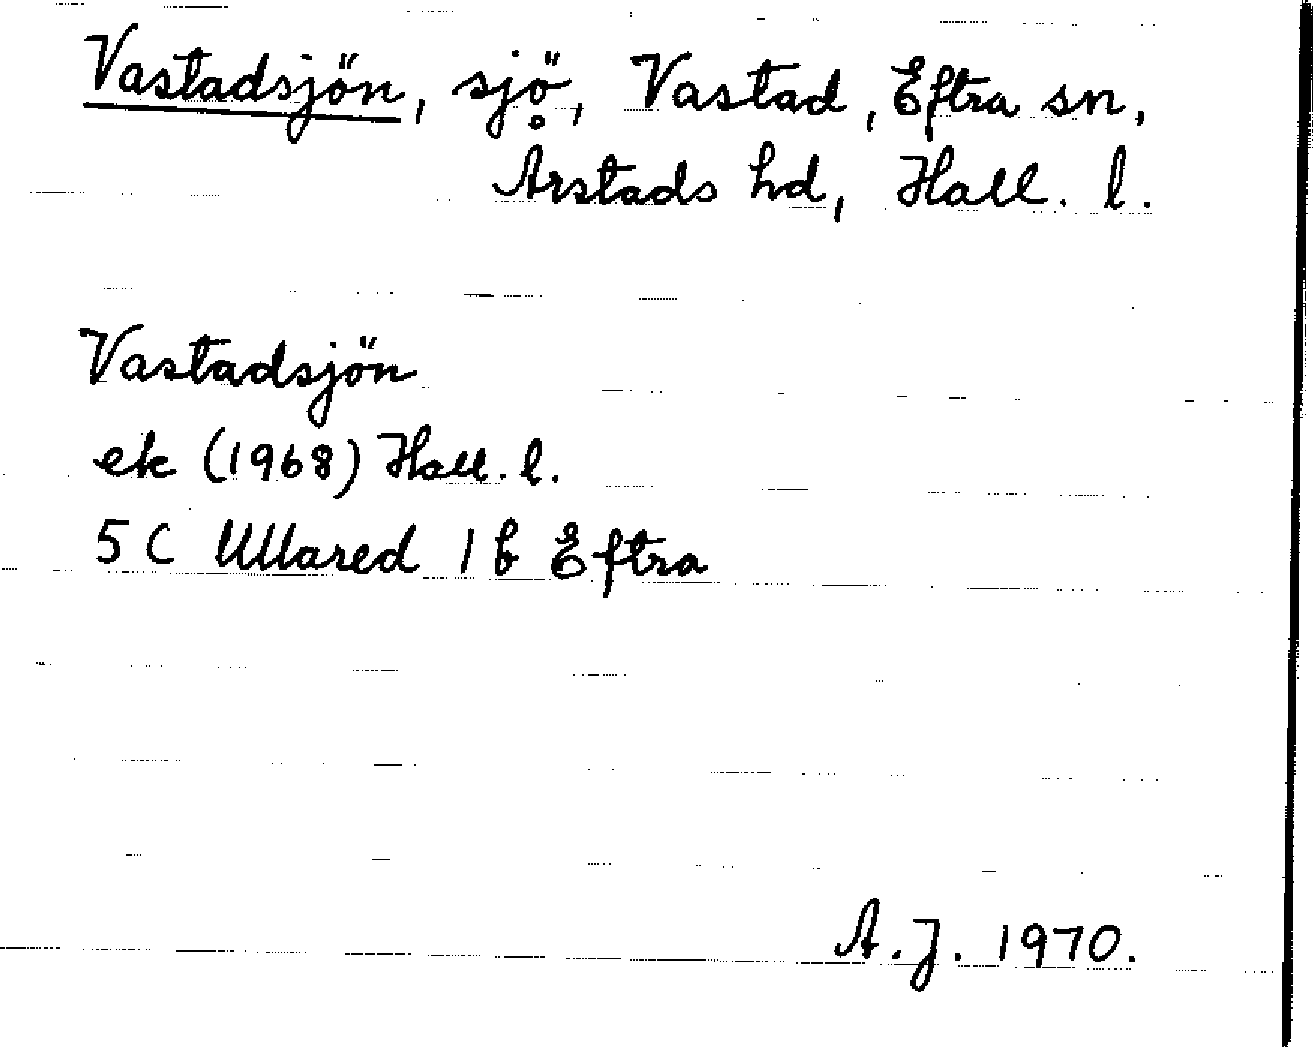 Vastadsjön, sjö, Vastad, Eftra sn,
Årstads hd, Hall. l.
Vastadsjön
ek (1968) Hall. l.
5 C Ullared 1 b Eftra
A.J. 1970.